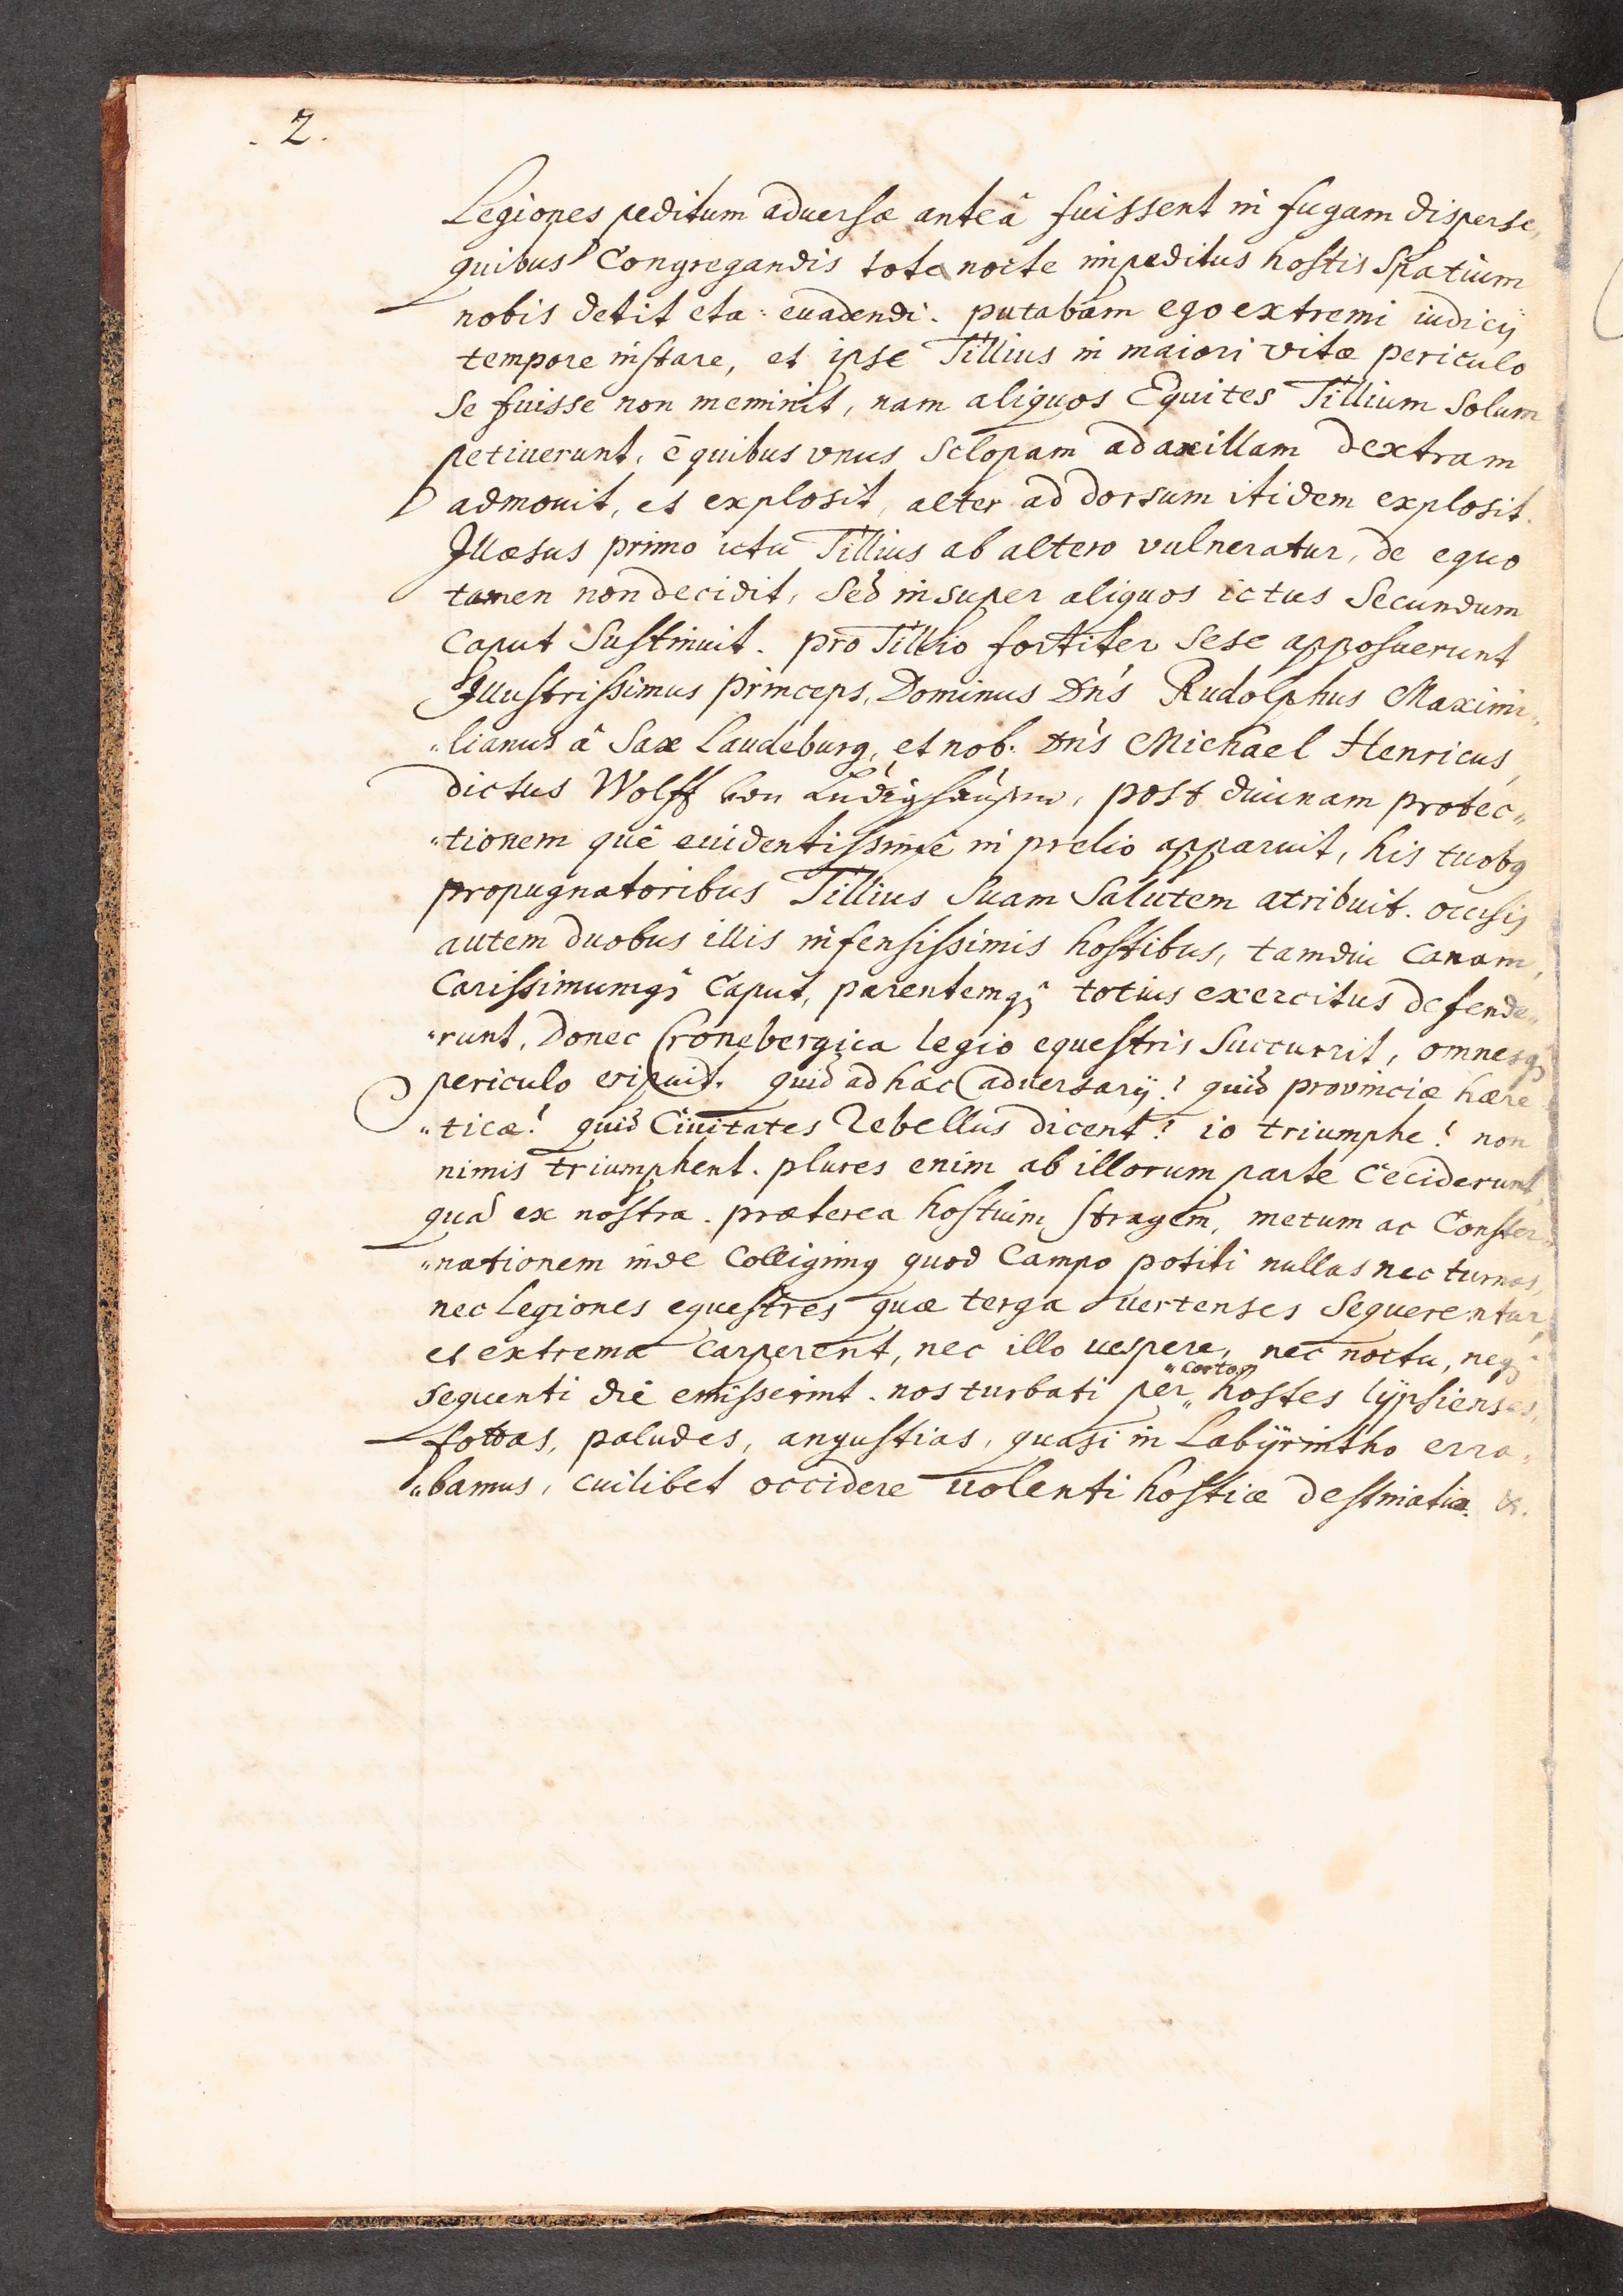 . 2.
Legiones peditum aduersæ anteâ fuissent in fugam disperse,
quibus Congregandis tota nocte impeditus hostis Spatium
nobis detit eta: euadendi. putabam ego extremi iudicij
tempore instare, et ipse Tillius in maiori vitæ periculo
Se fuisse non meminit, nam aliquos Equites Tillium Solum
petiuerunt, ē quibus vnus Sclopam ad axillam dextram
admouit, et explosit, alter ad dorsum itidem explosit.
Illæsus primo ictu Tillius ab altero vulneratur, de equo
tamen non decidit, Sed insuper aliquos ictus Secundum
Caput Sustinuit. pro Tillio fortiter Sese apposuerunt
Illustrissimus princeps, Dominus Dn's Rudolphus Maximi„
„lianus â Sax Laudeburg, et nob. Dn's Michael Henricus,
dictus Wolff von Ludigshausen, post diuinam protec„
„tionem quê euidentissimê in prelio apparuit, his tuobq
propugnatoribus Tillius Suam Salutem atribuit. occisij
autem duobus illis infensissimis hostibus, tamdiu Canam,
Carissimumq3 Caput, parentemq3 totius exercitus defende„
„runt, Donec Cronebergica legio equestris Succurrit, omnesq3
periculo eripuit. quid ad hac adversarij! quid provinciæ hære„
„ticæ! quid Ciuitates Rebellus dicent! io triumphe! non
nimis triumphent. plures enim ab illorum parte Ceciderunt,
qua ex nostra. præterea hostium Stragem, metum ac Conster„
„nationem inde Colligimq quod Campo potiti nullas nec turmas,
nec legiones equestres quæ terga vertenses Sequerentur,
et extrema Carperent, nec illo uespere, nec noctu, neq3
Sequenti die emisserint. nos turbati per „ hostes lÿpsienses,
fossas, paludes, angustias, quasi in Labÿrintho erra„
„bamus, cuilibet occidere uolenti hostiæ destinatiæ. &.